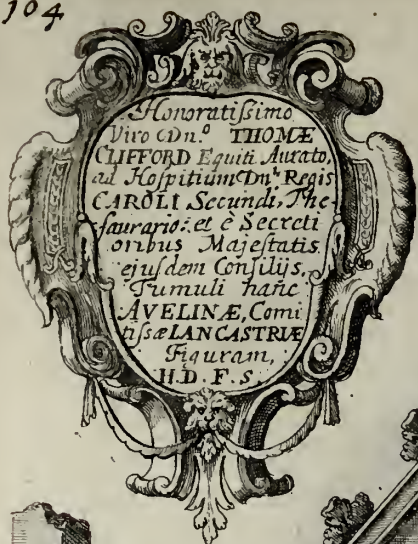 104
Honoratiſsimo
Viro Dn.º THOMÆ
CLIFFORD Equiti Aurato,
ad Hoſpitium Dn.ⁱ Regis
CAROLI Secundi, The-
ſaurario: et è Secreti
oribus Majeſtatis
ejuſdem Conſilijs,
Tumuli hanc
AVELINÆ, Comi
tiſsæ LANCASTRIÆ
Figuram,
H.D.F.S.